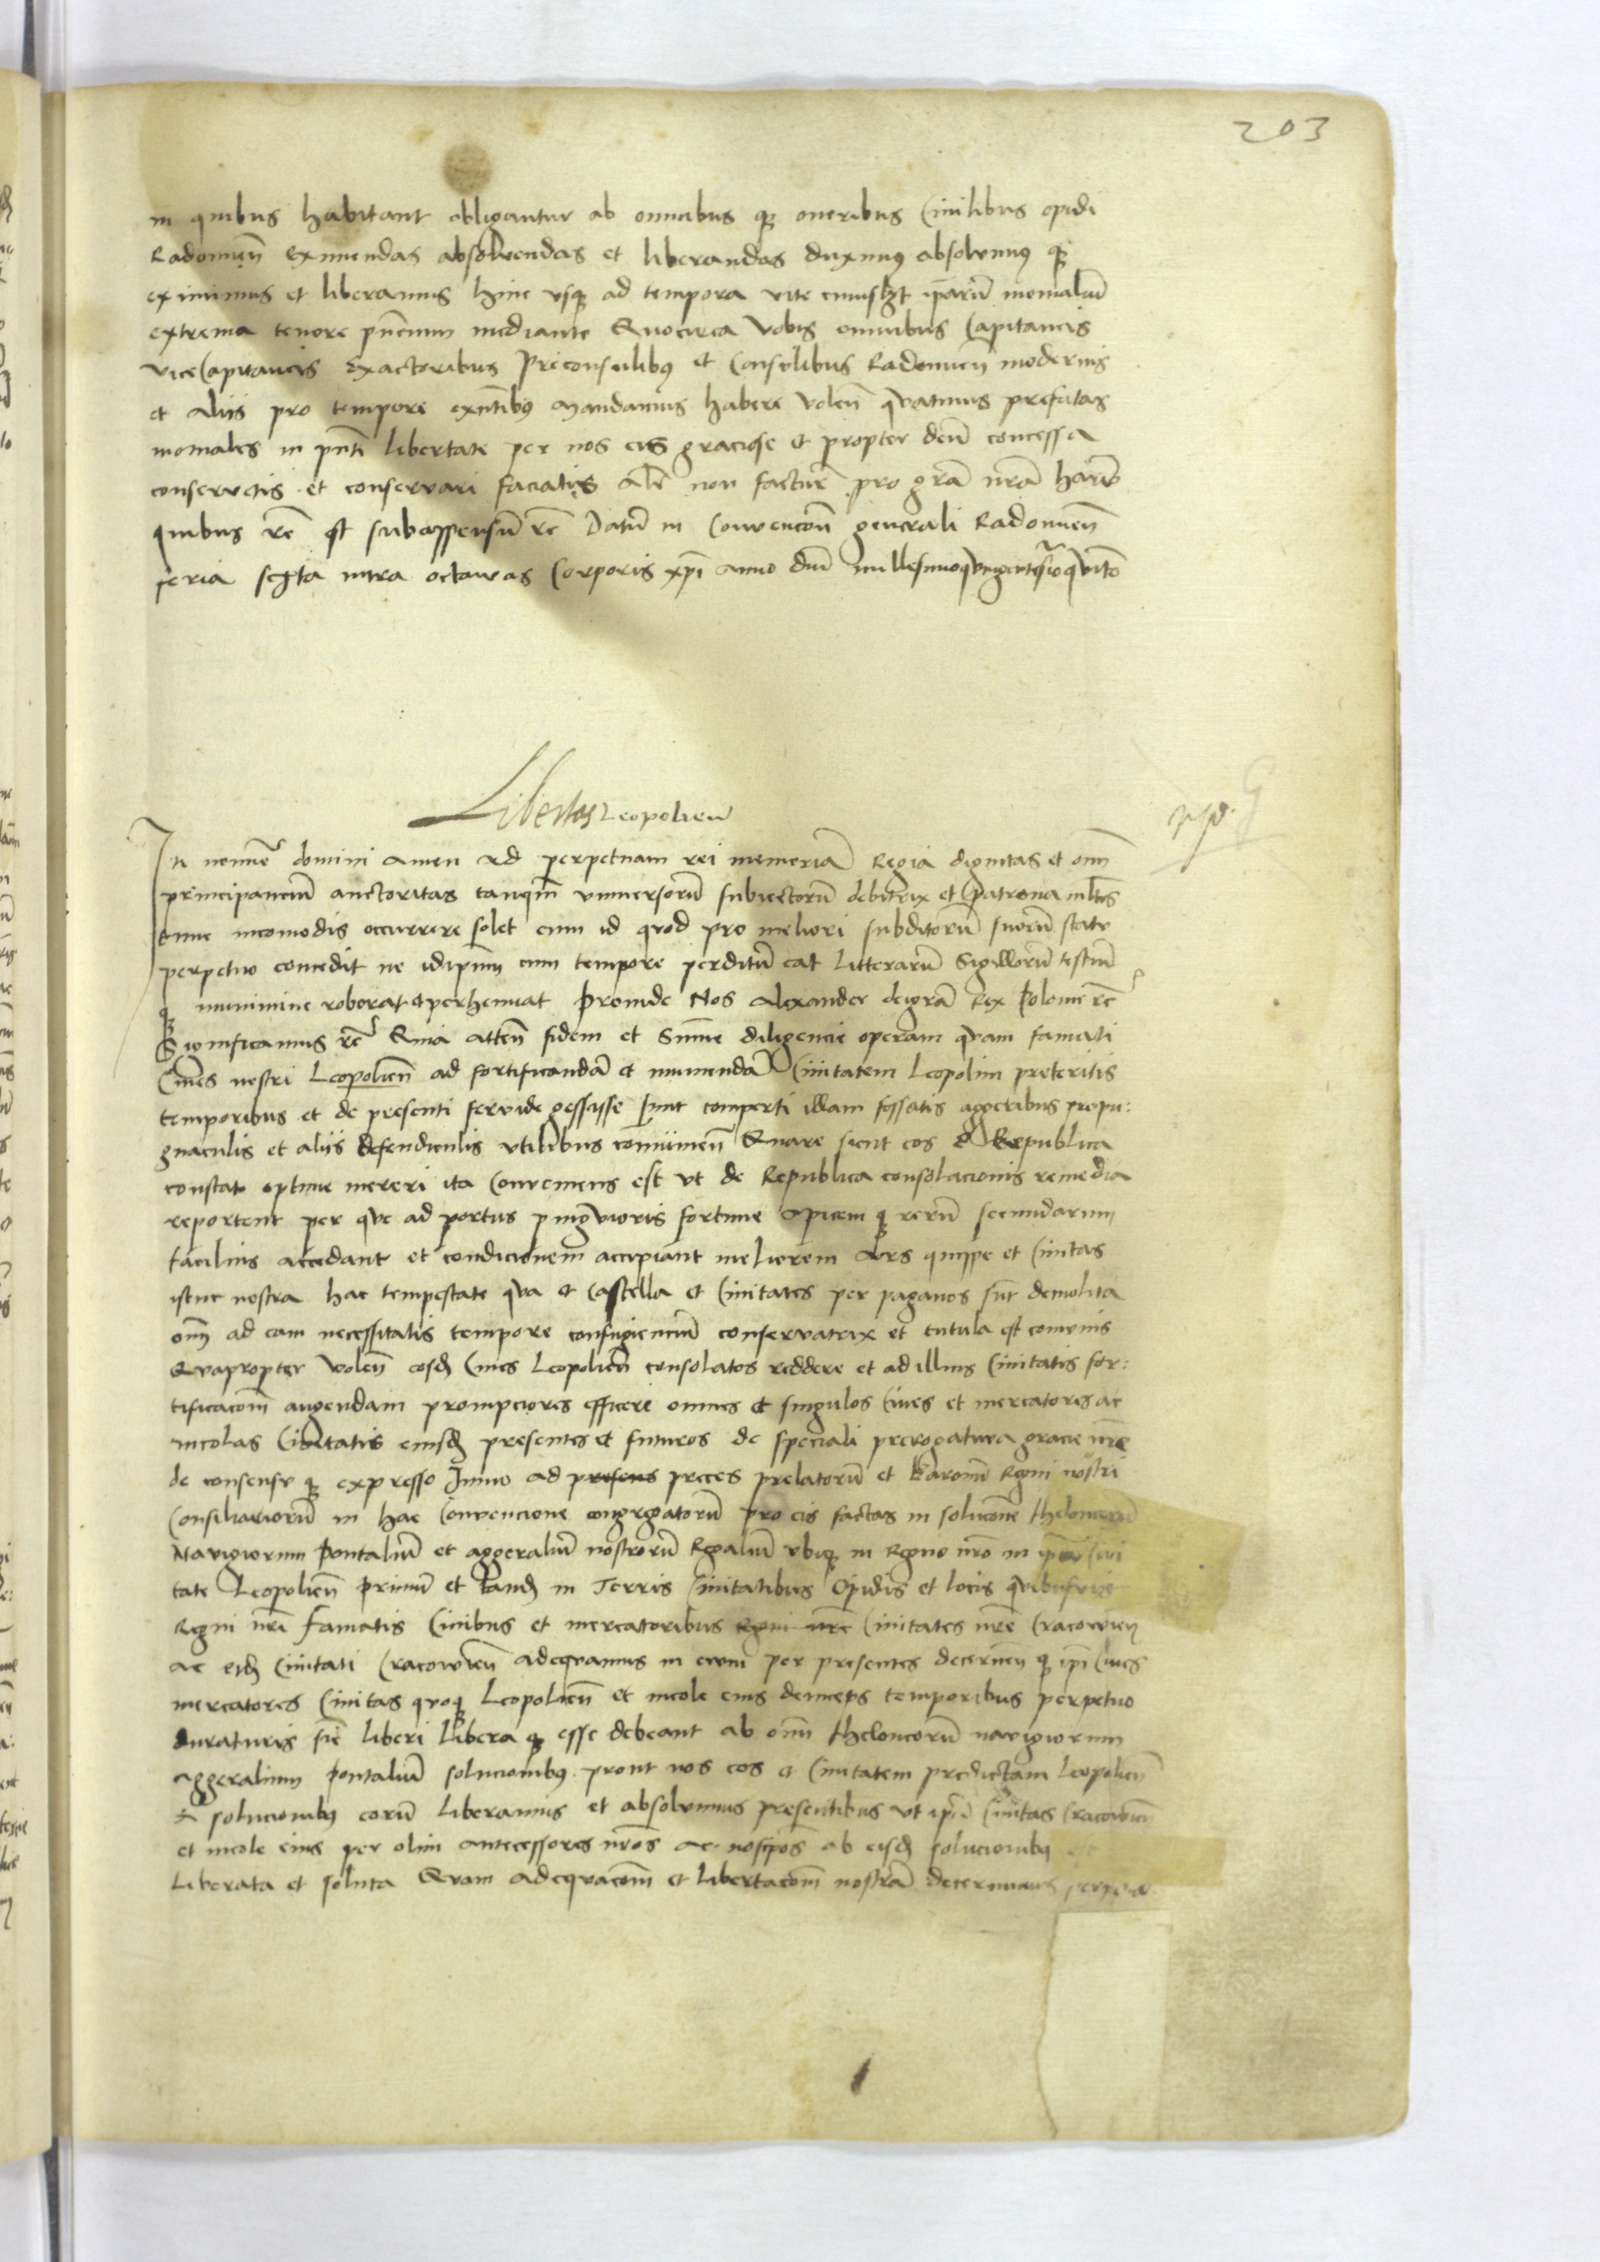 203
in quibus habitant obligantur ab omnibus qz oneribus Civilibus opidi
Radomien̄ Eximendas absolvendas et liberandas duximus absolvimus qz
eximimus et liberamus hinc usqz ad tempora vite cuiuslȝt ip̄arū monialiū
extrema tenore pn̄cium mediante Quocirca Vobis omnibus Capitaneis
viceCapitaneis Exactoribus Preconsulibus et Consulibus Radomien̄ modernis
et aliis pro tempore exn̄tibus Mandamus habere volen̄ quatinus prefatas
moniales in pn̄ti libertate per nos eis graciose et propter deū concessa
conservetis et conservari faciatis Alr̄ non factur̄ pro grā nrā harū
quibus rē st subappensū rē Datū in Convencōn̄ generali Radomien̄
feria sexta intra octavas Corporis xp̄i Anno dnī millesimoquingentesimoquīto
Libertas Leopolien̄
In nomīe domini Amen Ad perpetuam rei memoriā Regia dignitas et omn̄
principanciū auctoritas tanqm̄ universorū subiectorū debitrix et patrona
incomodis occurrere solet cum id quod pro meliori subditorū suorū statu
perpetuo concedit ne idipm̄ cum tempore perditū eat litterarū Sigillorū testiū
qz munimine roborat et perhennat Proinde Nos Alexander dei grā Rex Polonie rē
Significamus rē Quia atten̄ fidem et Sūme diligencie operam quam famati
Cives nostri Leopolien̄ ad fortificandā et muniendā Civitatem Leopolim preteritis
temporibus et de presenti fervide gessisse sunt comperti illam fossatis aggeribus propu:
gnaculis et aliis defendiculis utilibus com̄unien̄ Quare sicut eos e Republica
constat optime mereri ita Conveniens est ut de Republica consolacionis remedia
reportent per que ad portus pingvioris fortune Apicem qz rerū secundarum
facilius accedant et condicionem accipiant meliorem Ars quippe et Civitas
istuc nostra hac tempestate qua et Castella et Civitates per paganos sūt demolita
omn̄ ad eam necessitatis tempore confugienciū conservatrix et tutela est comunis
Quapropter volen̄ eosd̄ Cives Leopolien̄ consolatos reddere et ad illius Civitatis for:
tificacōm augendam prompciores efficere omnes et singulos Cives et mercatores ac
incolas Civitatis eiusd̄ presentes et futuros de speciali prerogativa gracie nrē
de consensu qz expresso Immo ad presens preces prelatorū et Baronū Regni nostri
Consiliariorū in hac Convencione congregatorū pro eis factas in solucōne theloneorū
Navigiorum Pontaliū et aggeraliū nostrorū Regaliū ubiqz in Regno nrō in ipa Civi
tate Leopolien̄ primū et tand̄ in Terris Civitatibus Opidis et locis quibusvis
Regni nrī Famatis Civibus et mercatoribus Regni nrē Civitates nrē Cracovien̄
ac eid̄ Civitati Cracovien̄ adequamus in evum per presentes decernen̄ qz ipī Cives
mercatores Civitas quoqz Leopolien̄ et incole eius deinceps temporibus perpetuo
duraturis sīt liberi libera qz esse debeant ab omn̄ theloneorū navigiorum
Aggeralium Pontaliū solucionibus prout nos eos et Civitatem predictam Leopolien̄
Ex solucionibus eorū liberamus et absolvimus presentibus ut ipā Civitas Cracovien̄
et incole eius per olim antecessores nrōs ac nosipos ab eisd̄ solucionibus est
Liberata et soluta Quam adequacōm et libertacōm nostrā decernimus